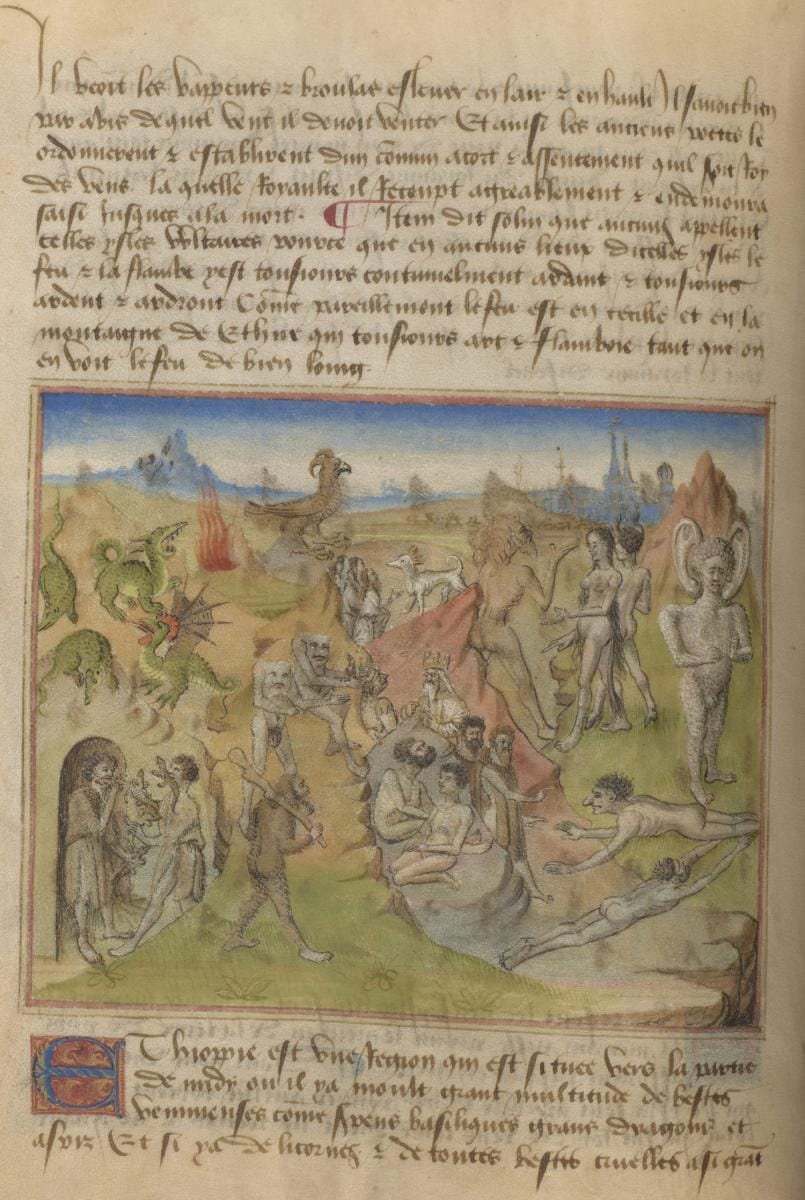 Il veoit les vappeurs ⁊ broulas eslever en lair ⁊ en hault Il savoit bien
par avis de quel vent il devoit venter Et ainsi les anciens poetes le
ordonnerent ⁊ establirent dun cōmun acort ⁊ assentement quil soit Roy
des vens. la quelle Royaulte il Receupt agreablement ⁊ en demoura
saisi Jusques a la mort. ¶ Item dit solin que aucuns appellent
celles ysles Vlcaires pource que en aucuns lieux dicelles ysles le
feu ⁊ la flambe y est tousiours continuelment ardant ⁊ tousiours
ardent ⁊ ardront Cōme pareillement le feu est en cecille et en la
montaigne de Ethne qui tousiours art ⁊ flamboie tant que on
en voit le feu de bien loing.
Ethioppie est vne Region qui est situee vers la partie
de midy ou il ya moult grant multitude de bestes
venimeuses cōme serpens basiliques grans dragons et
aspiz Et si ya de licornes ⁊ de toutes bestes cruelles a si grāt